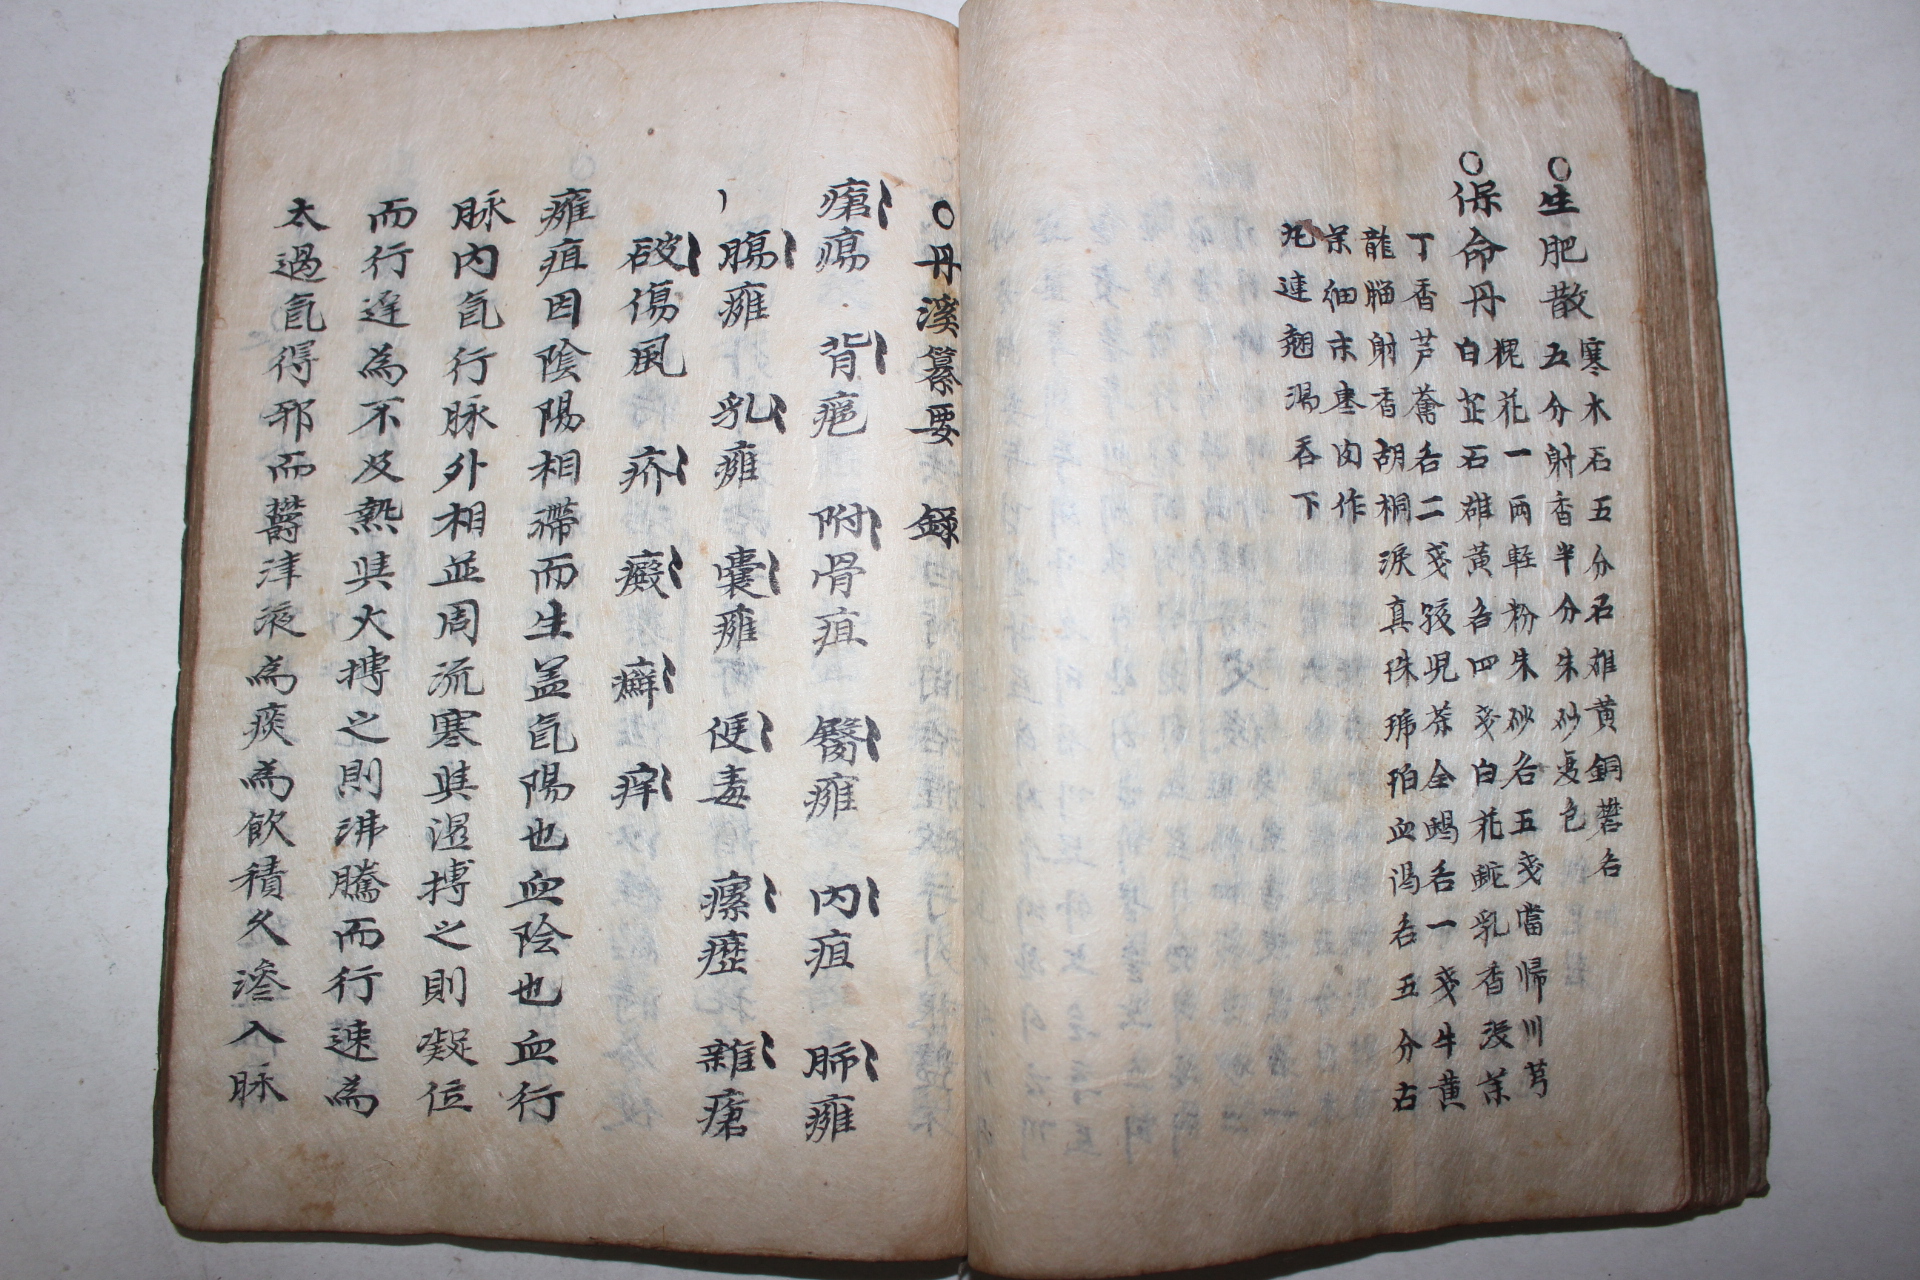 ○生肥散
寒水石五分石雄黄銅礬各
五分射香半分朱砂変色
○保命丹
槐花一両軽粉朱砂各五戔當帰川芎
白芷石雄黄各四戔白花蛇乳香没茶
丁香芦薈各二戔孩児茶全蝎各一戔牛黄
龍脳射香胡桐淚真珠琥珀血渴各五分右
茶細末棗肉作
丸連翹湯吞下
○丹溪纂要 錄
瘡瘍 背疮 附骨疽 臀癰 內疽 肺癰
腸癰 乳癰 囊癰 便毒 瘰癧 雜瘡
破傷風 疥 癜 癬 痒
癰疽因陰陽相滯而生盖氣陽也血陰也血行
脉内氣行脉外相並周流寒与湿搏之則凝位
而行遅為不及熱与火搏之則沸騰而行速為
太過氣得邪而欝津液為痰為飲積久滲入脉